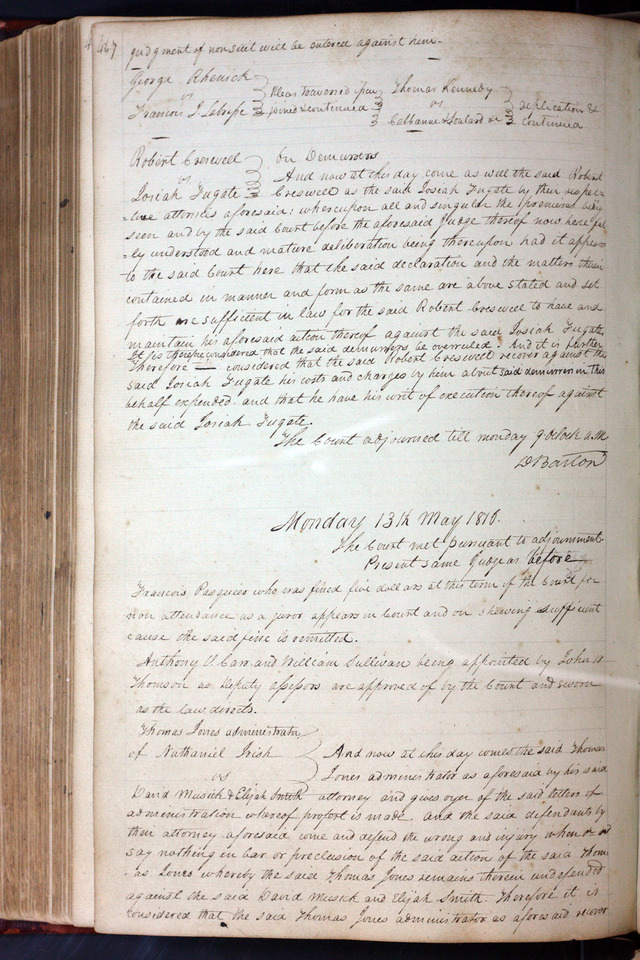 467
judgment of nonsuit will be entered against him.
George Rhenick
vs
Francois J. Labrope
Pleas traversed issue
joined & continued
Thomas Kennedy
vs
Cabbanne & Soulard
replication &
continued
Robert Creswell
vs
Josiah Fugate
On Demurrers
And now at this day come as well the said Robert
Creswell as the said Josiah Fugate by their respec-
-tive attornies aforesaid: whereupon all and singular the premises being
seen and by the said Court before the aforesaid Judge thereof now here ful
-ly understood and mature deliberation being thereupon had it appears
to the said Court here that the said declaration and the matters therein
contained in manner and form as the same are above stated and set
forth are sufficient in law for the said Robert Creswell to have and
maintain his aforesaid action thereof against the said Josiah Fugate
It is therefore considered that the said demurrers be overruled And it is further
Therefore considered that the said Robert Creswell recover against the
said Josiah Fugate his costs and charges by him about said demurrers in this
behalf expended. and that he have his writ of execution thereof against
the said Josiah Fugate.
The Court adjourned till monday 9 oclock A.M
D Barton
Monday 13th May 1816.
The Court met pursuant to adjournment
Present same Judge as before
Francois Pasqueer who was fined five dollars at this term of the Court for
non attendance as a juror appears in Court and on shewing sufficient
cause the said fine is remitted.
Anthony V Carr and William Sullivan being appointed by John W
Thomson as Deputy assessors are approved of by the Court and sworn
as the law directs.
Thomas Jones administrator
of Nathaniel Irish
vs
David Musick & Elijah Smith
And now at this day comes the said Thomas
Jones administrator as aforesaid by his said
attorney and gives oyer of the said letters of
administration whereof profert is made. And the said defendants by
their attorney aforesaid come and defend the wrong and injury when &c and
say nothing in bar or preclusion of the said action of the said Thom-
-as Jones whereby the said Thomas Jones remains therein undefended
against the said David Musick and Elijah Smith. Therefore it is
considered that the said Thomas Jones administrator as aforesaid recover